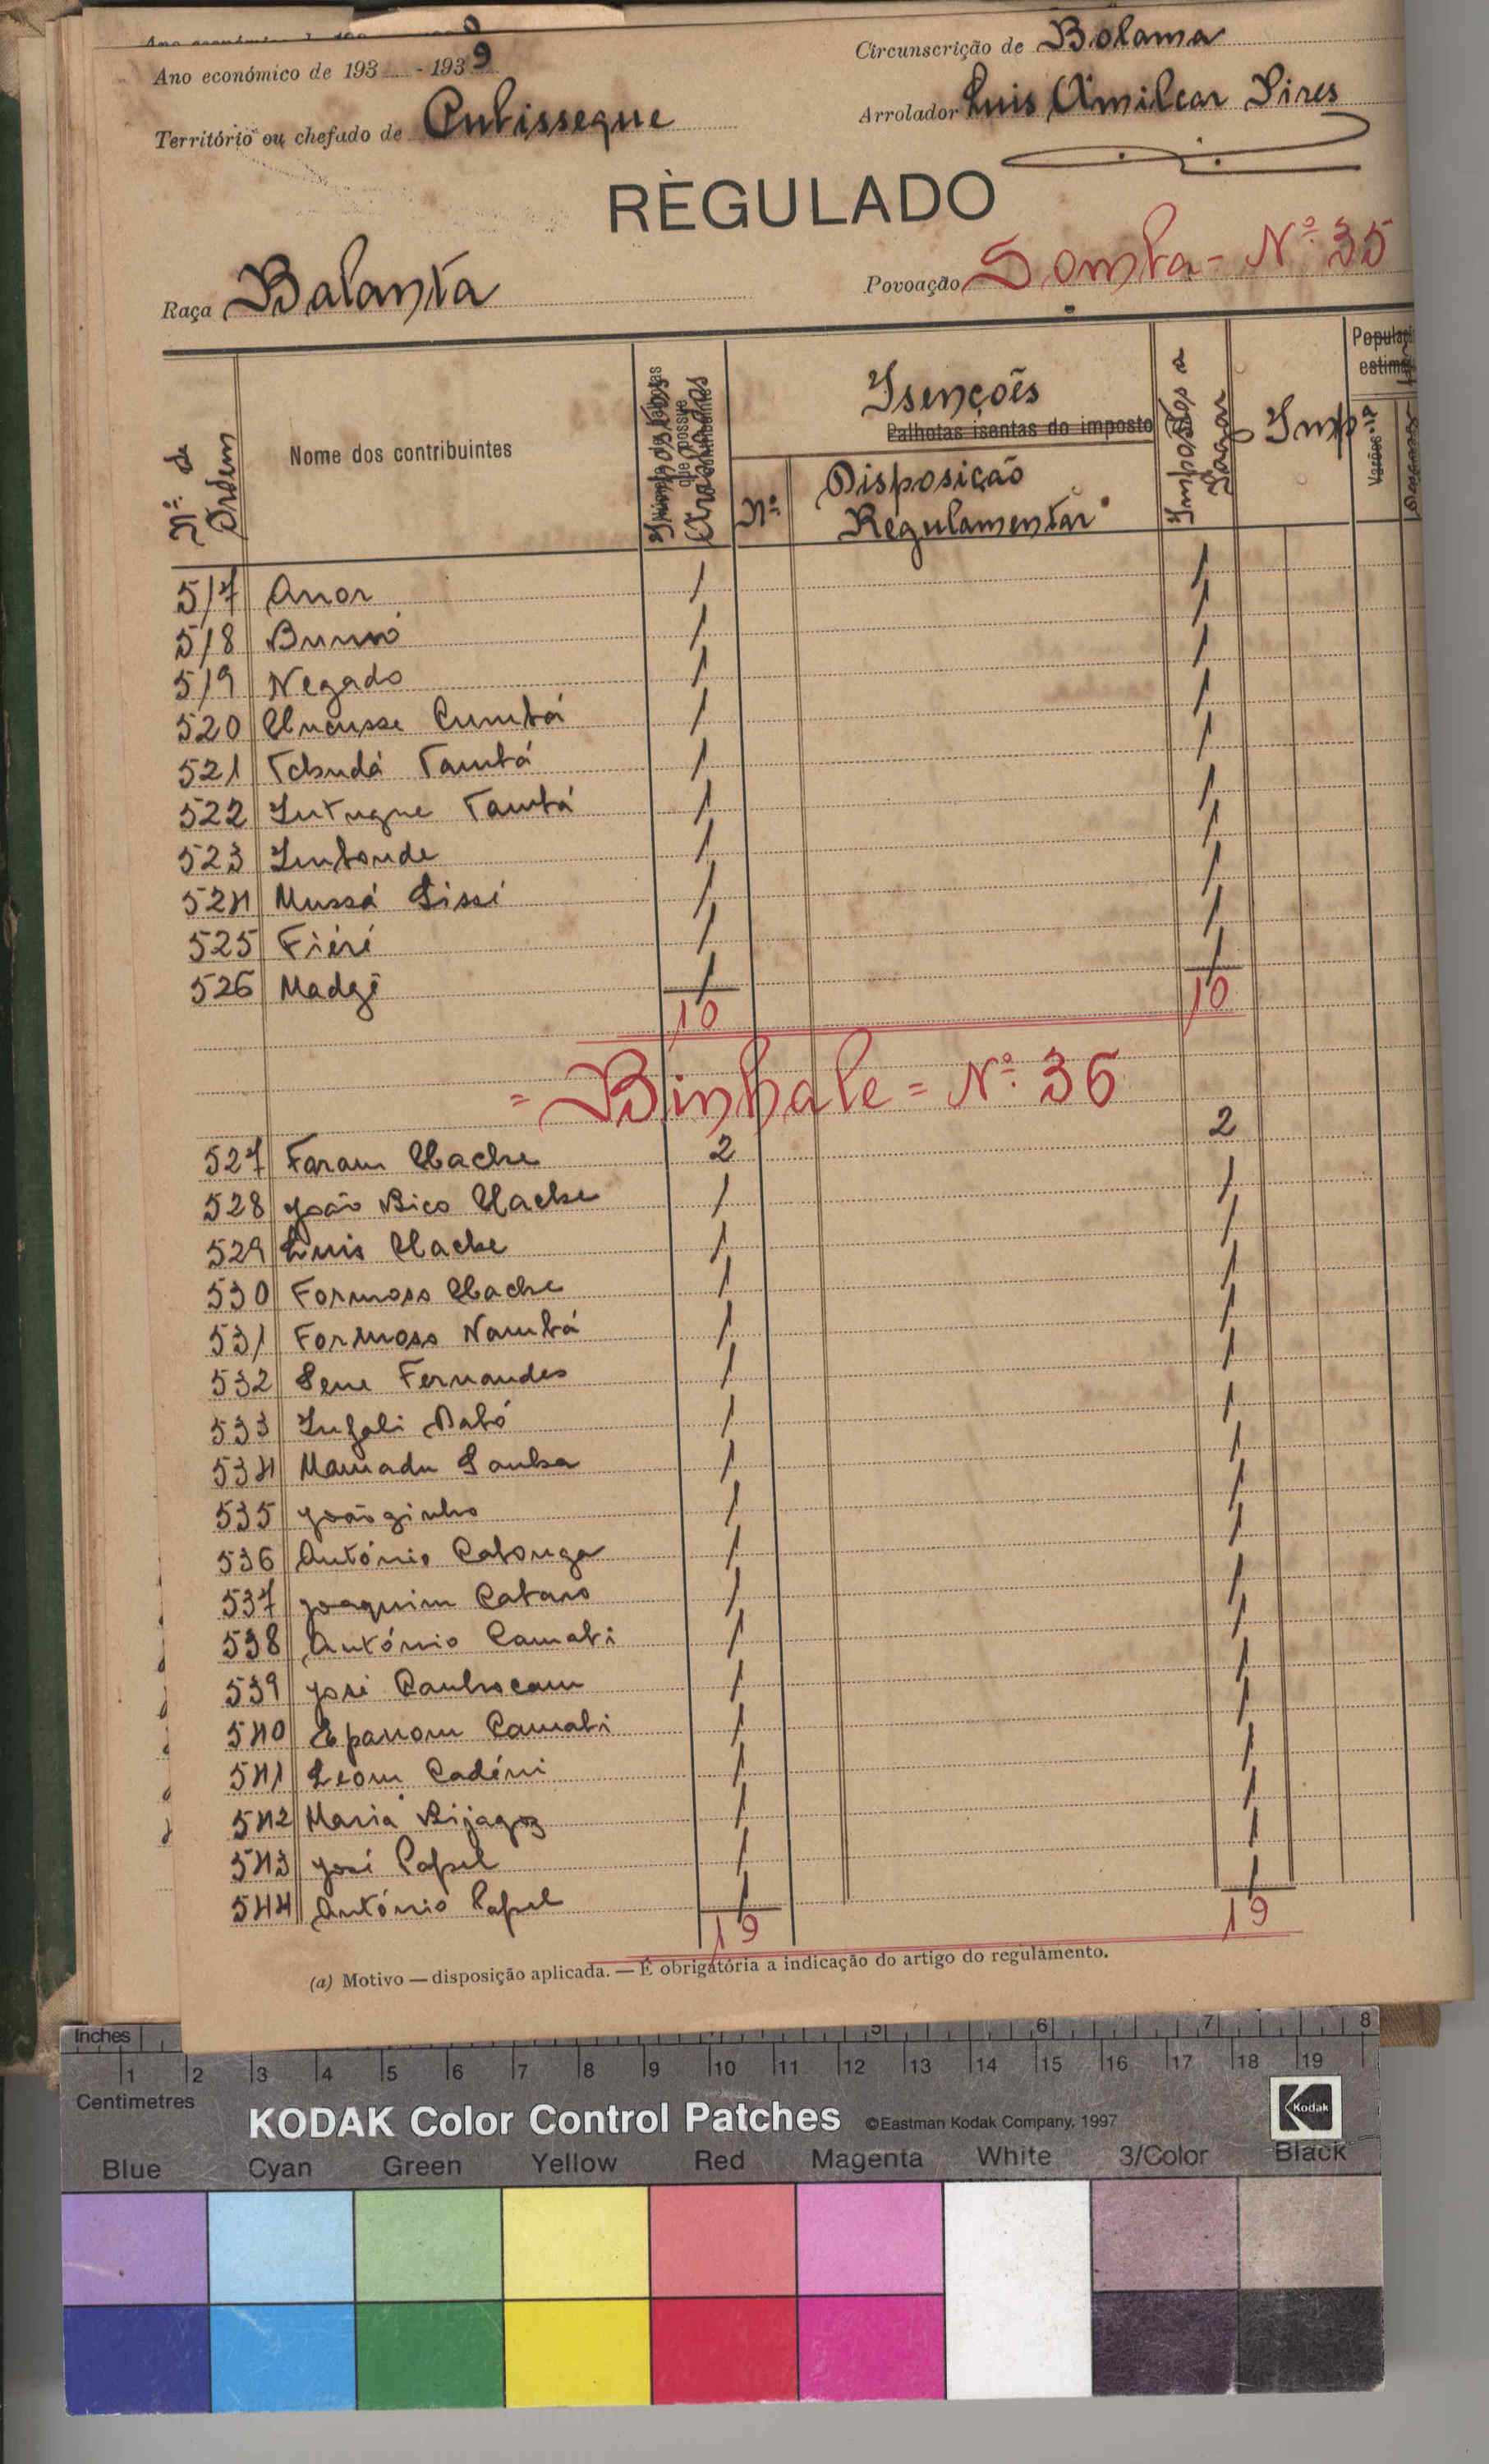 Ano económico de 193 - 1939
Circunscrição de Bolama
Território ou chefado de Cubisseque
Arrolador Luis Amilcar Pires
RÈGULADO
Raça Balanta
Povoação Somba - Nº. 35
Nº. de Ordem
Nome dos contribuintes
Impostos Arrolados
Isenções
Palhotas isentas do imposto
Nº.
Disposição Regulamentar
Impostos a Pagar
Imp
Varões
517 Anor 1 1
518 1 1
519 Negado 1 1
520 Cumbá 1 1
521 Tchudá Tambá 1 1
522 Intugue Tambá 1 1
523 Imbonde 1 1
524 Mussá Sissé 1 1
525 Fiéré 1 1
526 Madgé 1 1
10 10
= Binhale = Nº. 36
527 Faram Clache 2 2
528 João Bico Clache 1 1
529 Luis Clache 1 1
530 Formoso Clache 1 1
531 Formoso Nambá 1 1
532 Sene Fernandes 1 1
533 Infali Dabó 1 1
534 Mamadu Samba 1 1
535 Joãoginho 1 1
536 António Catonga 1 1
537 Joaquim 1 1
538 António Camati 1 1
539 José 1 1
540 Camati 1 1
541 Leom Cadéni 1 1
542 Maria Bijagoz 1 1
543 José Papel 1 1
544 António Papel 1 1
19 19
(a) Motivo — disposição aplicada. — É obrigatória a indicação do artigo do regulamento.
Inches 5 6 7 8
1 2 3 4 5 6 7 8 9 10 11 12 13 14 15 16 17 18 19
Centimetres
KODAK Color Control Patches ©Eastman Kodak Company, 1997 Kodak
Blue Cyan Green Yellow Red Magenta White 3/Color Black